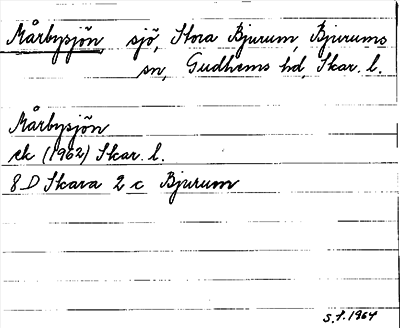 Mårbysjön sjö, Stora Bjurum, Bjurums
sn, Gudhems hd, Skar. l.
Mårbysjön
ek (1962) Skar. l.
8D Skara 2c Bjurum
S.f. 1964